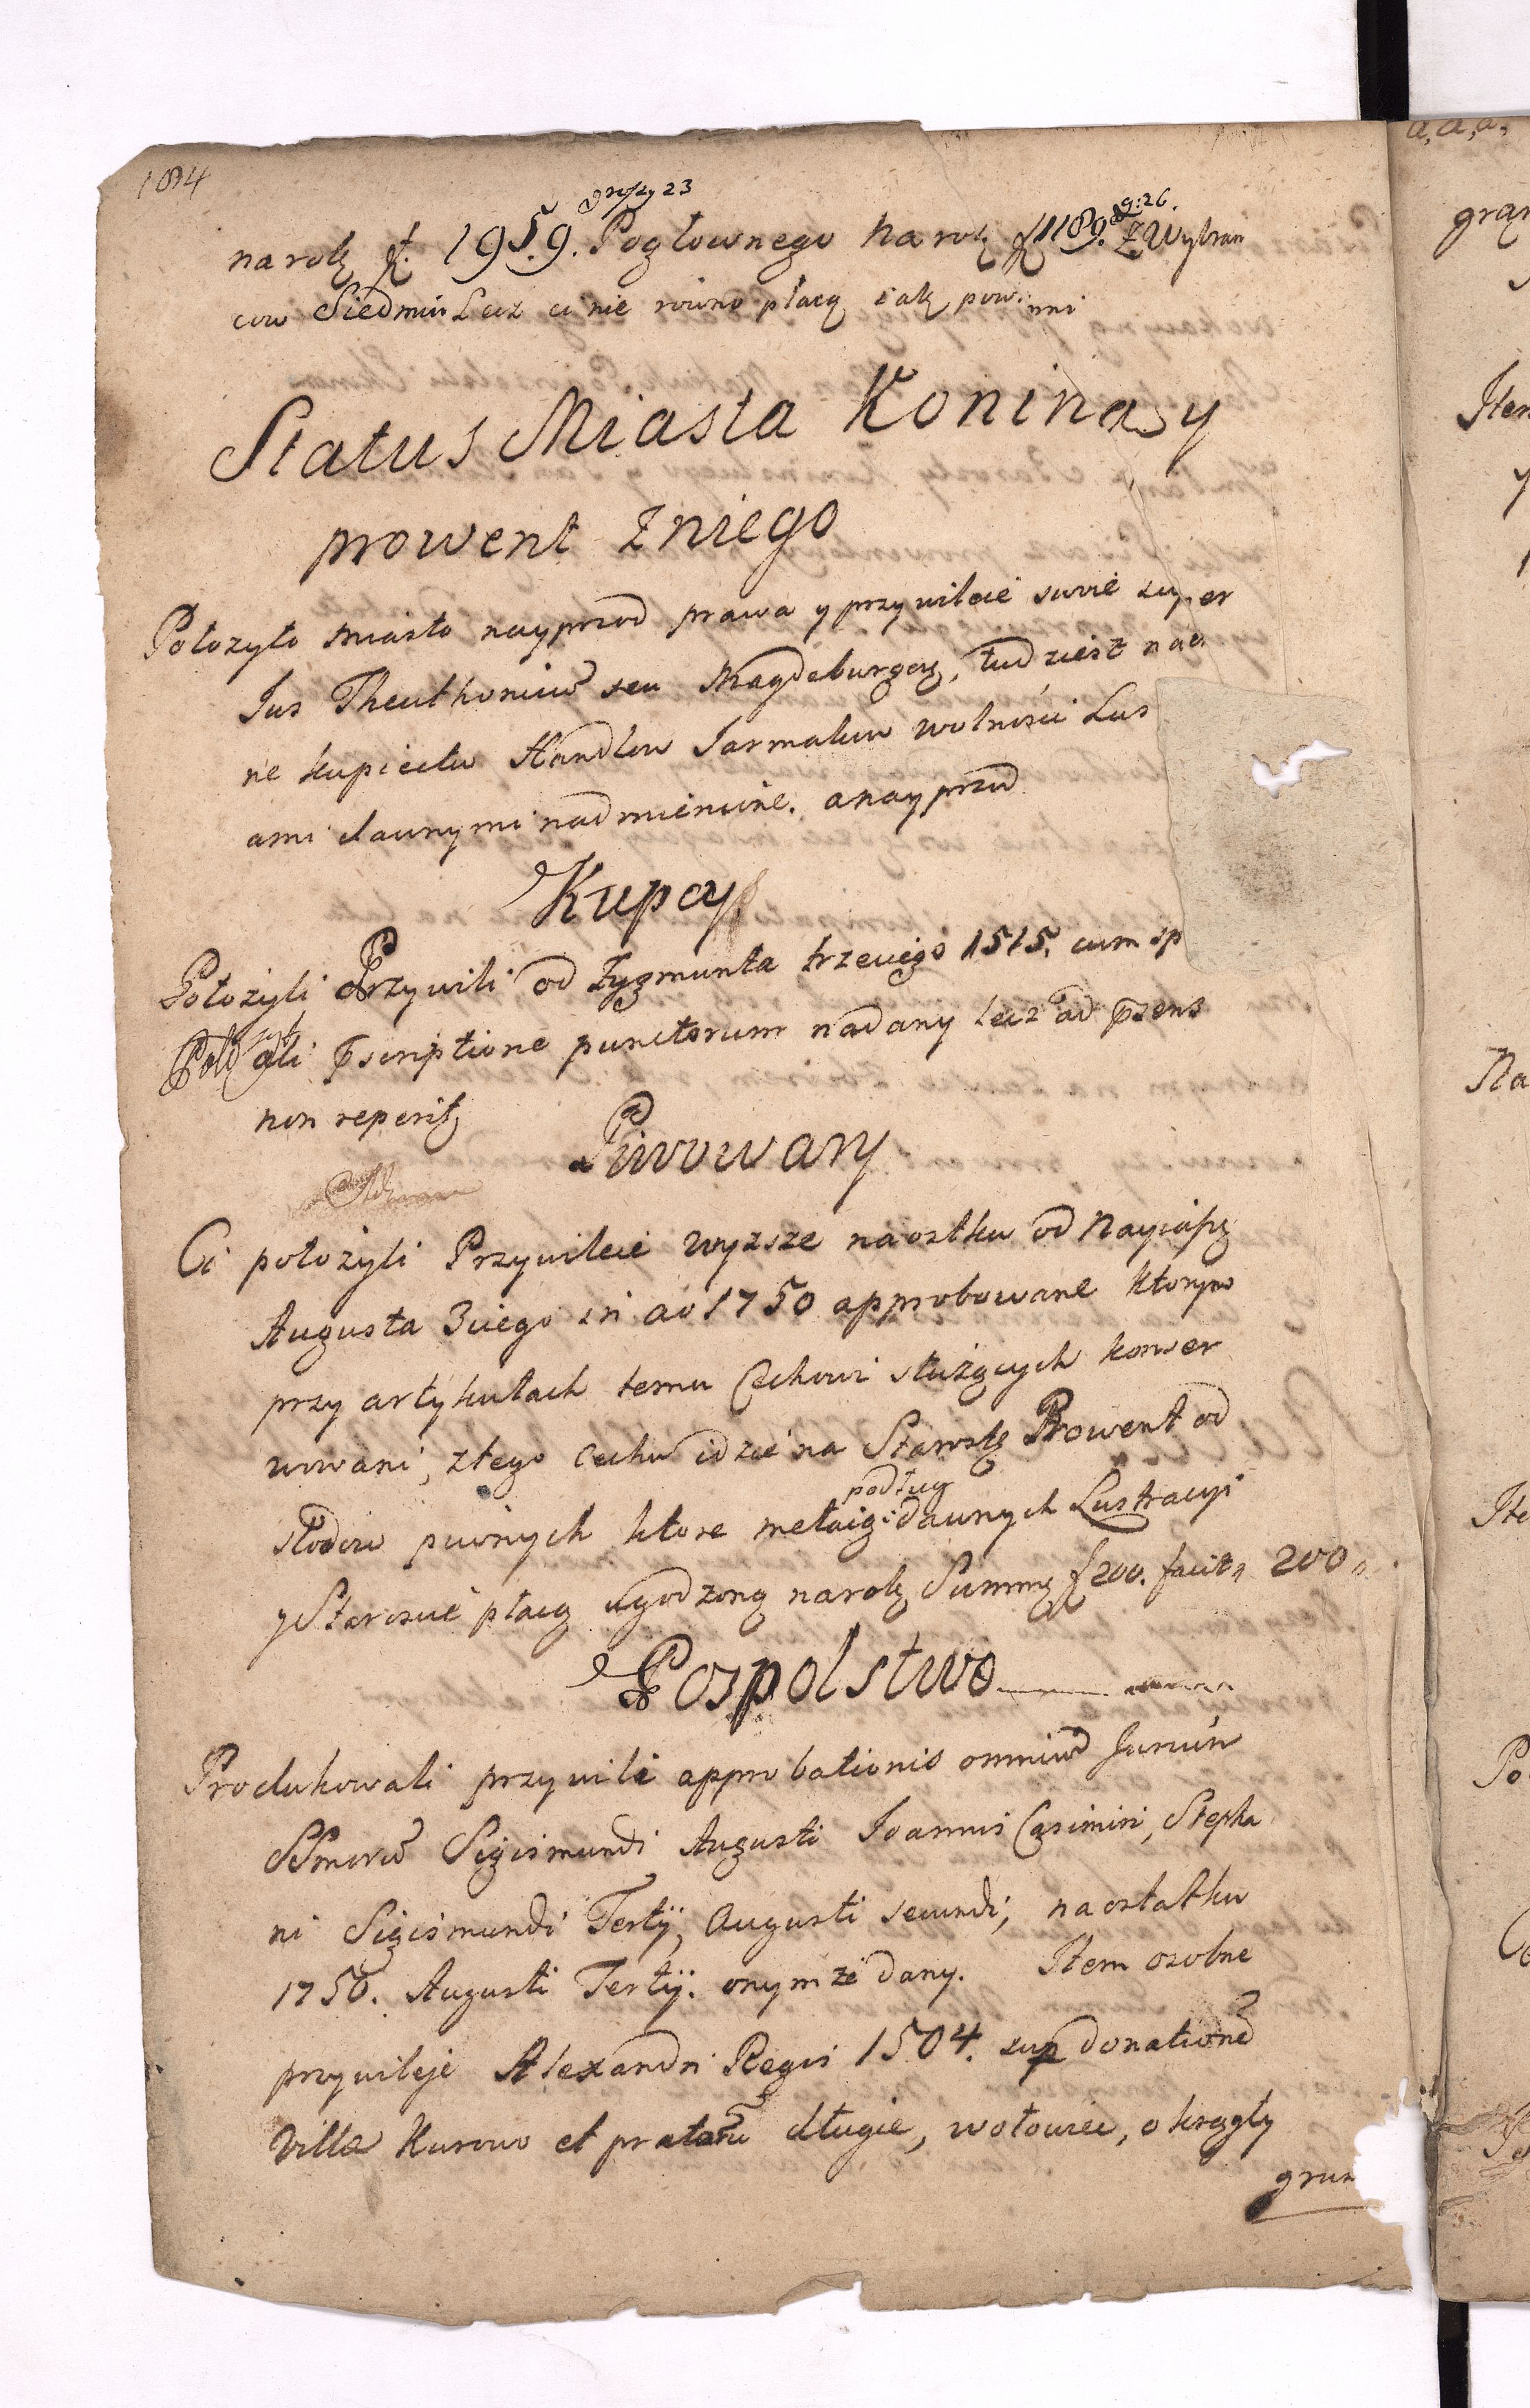 1094
groszy 23 g: 26.
na rok f. 1959. Pogłownego na rok f 1189. Z Wybran
cow Siedmiu Lecz ci nie rowno płacą iak powinni
Status Miasta Konina y
prowent z niego
Położyło miasto nayprzod prawa y przywileie swoie super
Jus Theuthonicū seu Magdeburgen, tudziesz nada
ne kupiectw Handlow Jarmakow wolności Lus
ami dawnymi nadmienione. a nayprzod
Kupcy
Położyli Przywili od Zygmunta trzeciego 1515. cum sp
ali pscriptione punctorum nadany lecz ad psens
non reperit
Piwowary
Ci położyli Przywileie wyzsze na ostku od Nayiaśę
Augusta 3ciego in ao 1750 approbowane ktorym
przy artykułach temu Cechowi służących konser
wowani, z tego cechu idzie na Starostę Prowent od
podług
słodow piwnych ktore mełaią dawnych Lustracyi
y Staroscie płacą ugodzoną na rok Summę f 200. facit 200
Pospolstwo
Produkowali przywili approbationis omniū Jurium
SSmorū Sigismundi Augusti Joannis Casimiri, Stepha
ni Sigismundi Tertij, Augusti secundi, na ostatku
1750. Augusti Tertij. onymże dany. Item osobne
przywileje Alexandri Regis 1504. sup donationē
Villæ Kurowo et pratorū długie, wołowiec, okrągły
grun